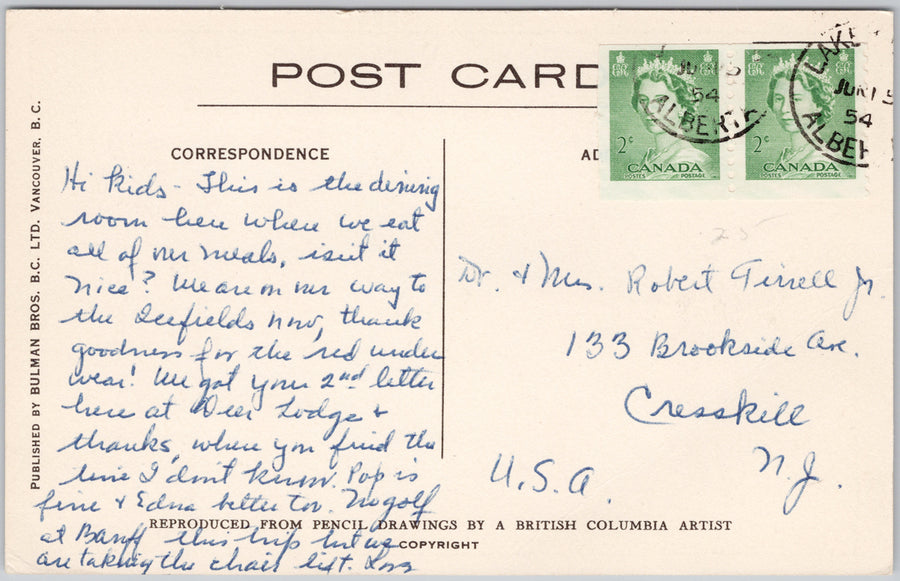 POST CARD
CORRESPONDENCE
AD
PUBLISHED BY BULMAN BROS. B.C. LTD. VANCOUVER, B. C.
LAKE
JUN 15
54
ALBERTA
JUN 15
54
ALBER
2¢
CANADA
POSTES POSTAGE
2¢
CANADA
POSTES POSTAGE
25
Hi Kids - This is the dining
room here where we eat
all of our meals, isn't it
nice? We are on our way to
the Icefields now, thank
goodness for the red under
wear! We got your 2nd letter
here at Deer Lodge &
thanks, where you find the
time I don't know. Pop is
fine & Edna better too. No golf
at Banff this trip but we
are taking the chair lift. Love
Dr. & Mrs. Robert Tirrell Jr.
133 Brookside Ave.
Cresskill
N.J.
U.S.A.
REPRODUCED FROM PENCIL DRAWINGS BY A BRITISH COLUMBIA ARTIST
COPYRIGHT